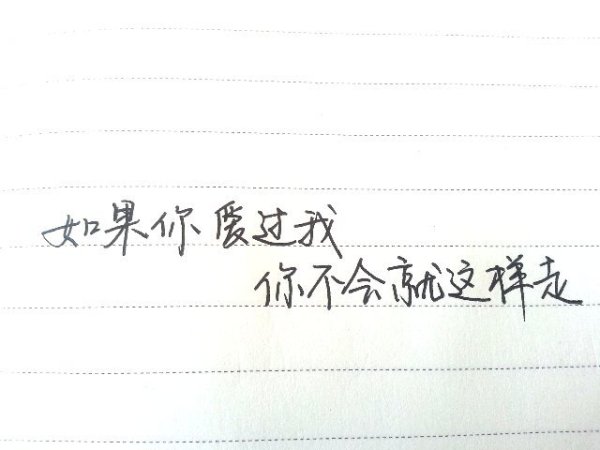 如果你爱过我
你不会就这样走